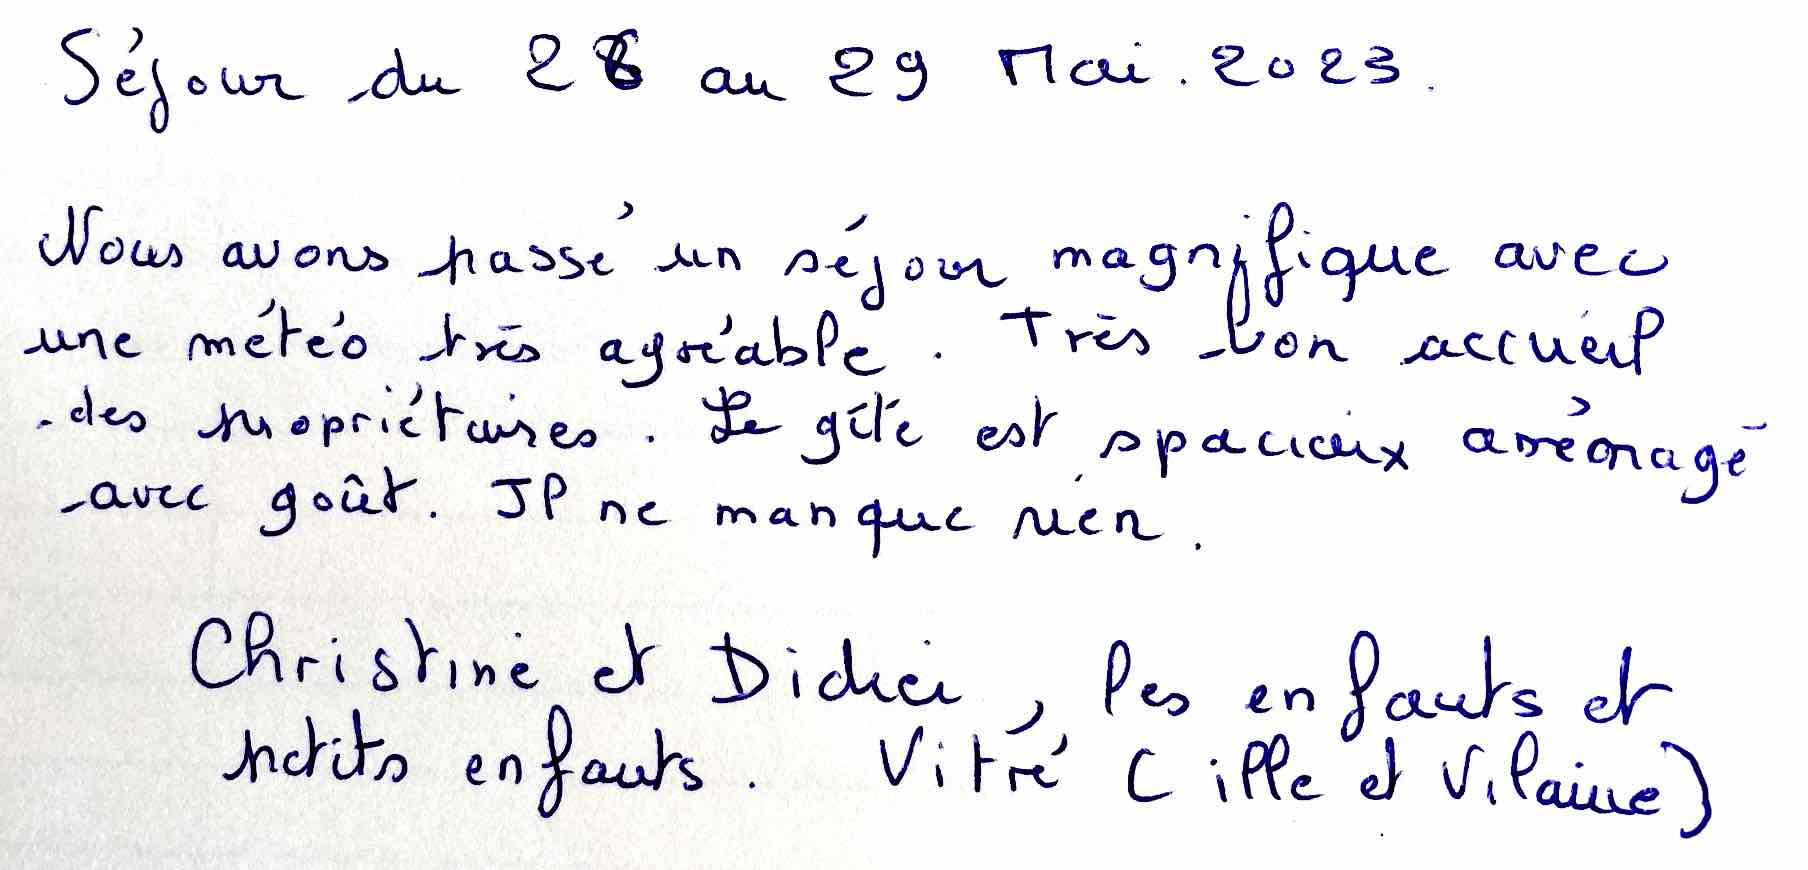 Séjour du 28 au 29 Mai. 2023.
Nous avons passé un séjour magnifique avec
une météo très agréable. Très bon accueil
des propriétaires. Le gîte est spacieux aménagé
avec goût. Il ne manque rien.
Christine et Didier, les enfants et
petits enfants. Vitré (ille et Vilaine)